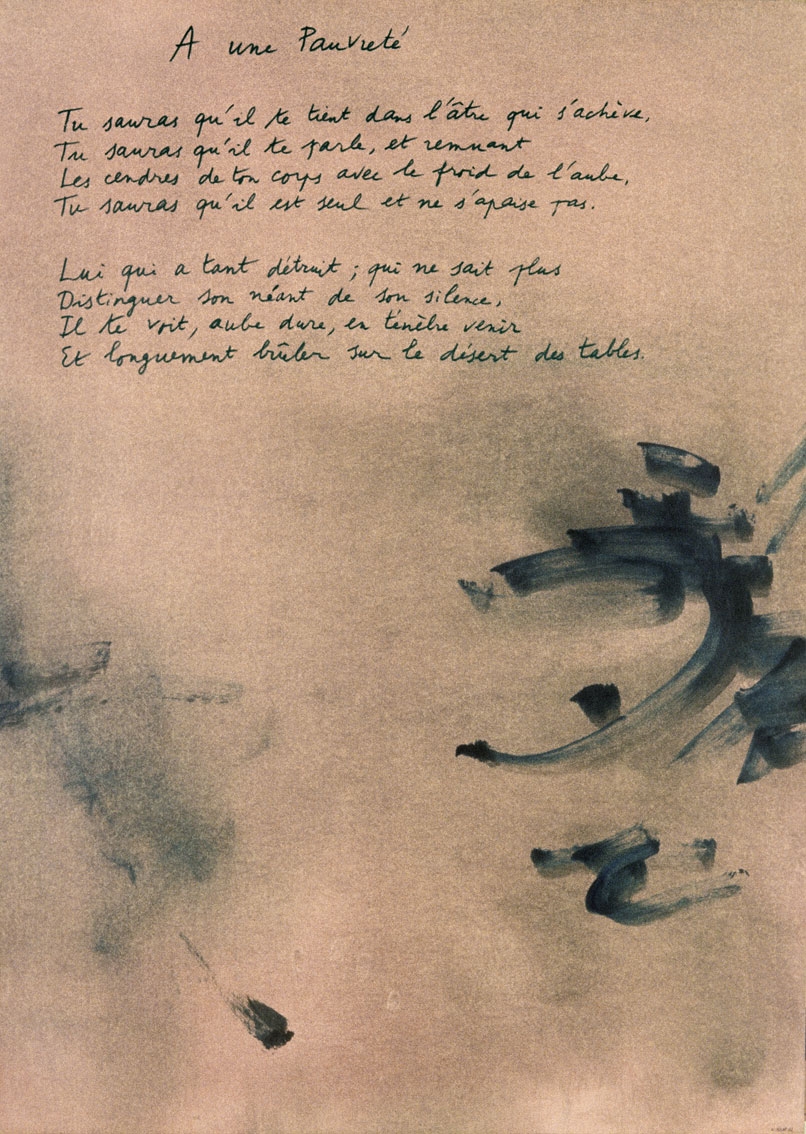 A une Pauvreté
Tu sauras qu'il te tient dans l'âtre qui s'achève,
Tu sauras qu'il te parle, et remuant
Les cendres de ton corps avec le froid de l'aube,
Tu sauras qu'il est seul et ne s'apaise pas.
Lui qui a tant détruit ; qui ne sait plus
Distinguer son néant de son silence,
Il te voit, aube dure, en ténèbre venir
Et longuement brûler sur le désert des tables.